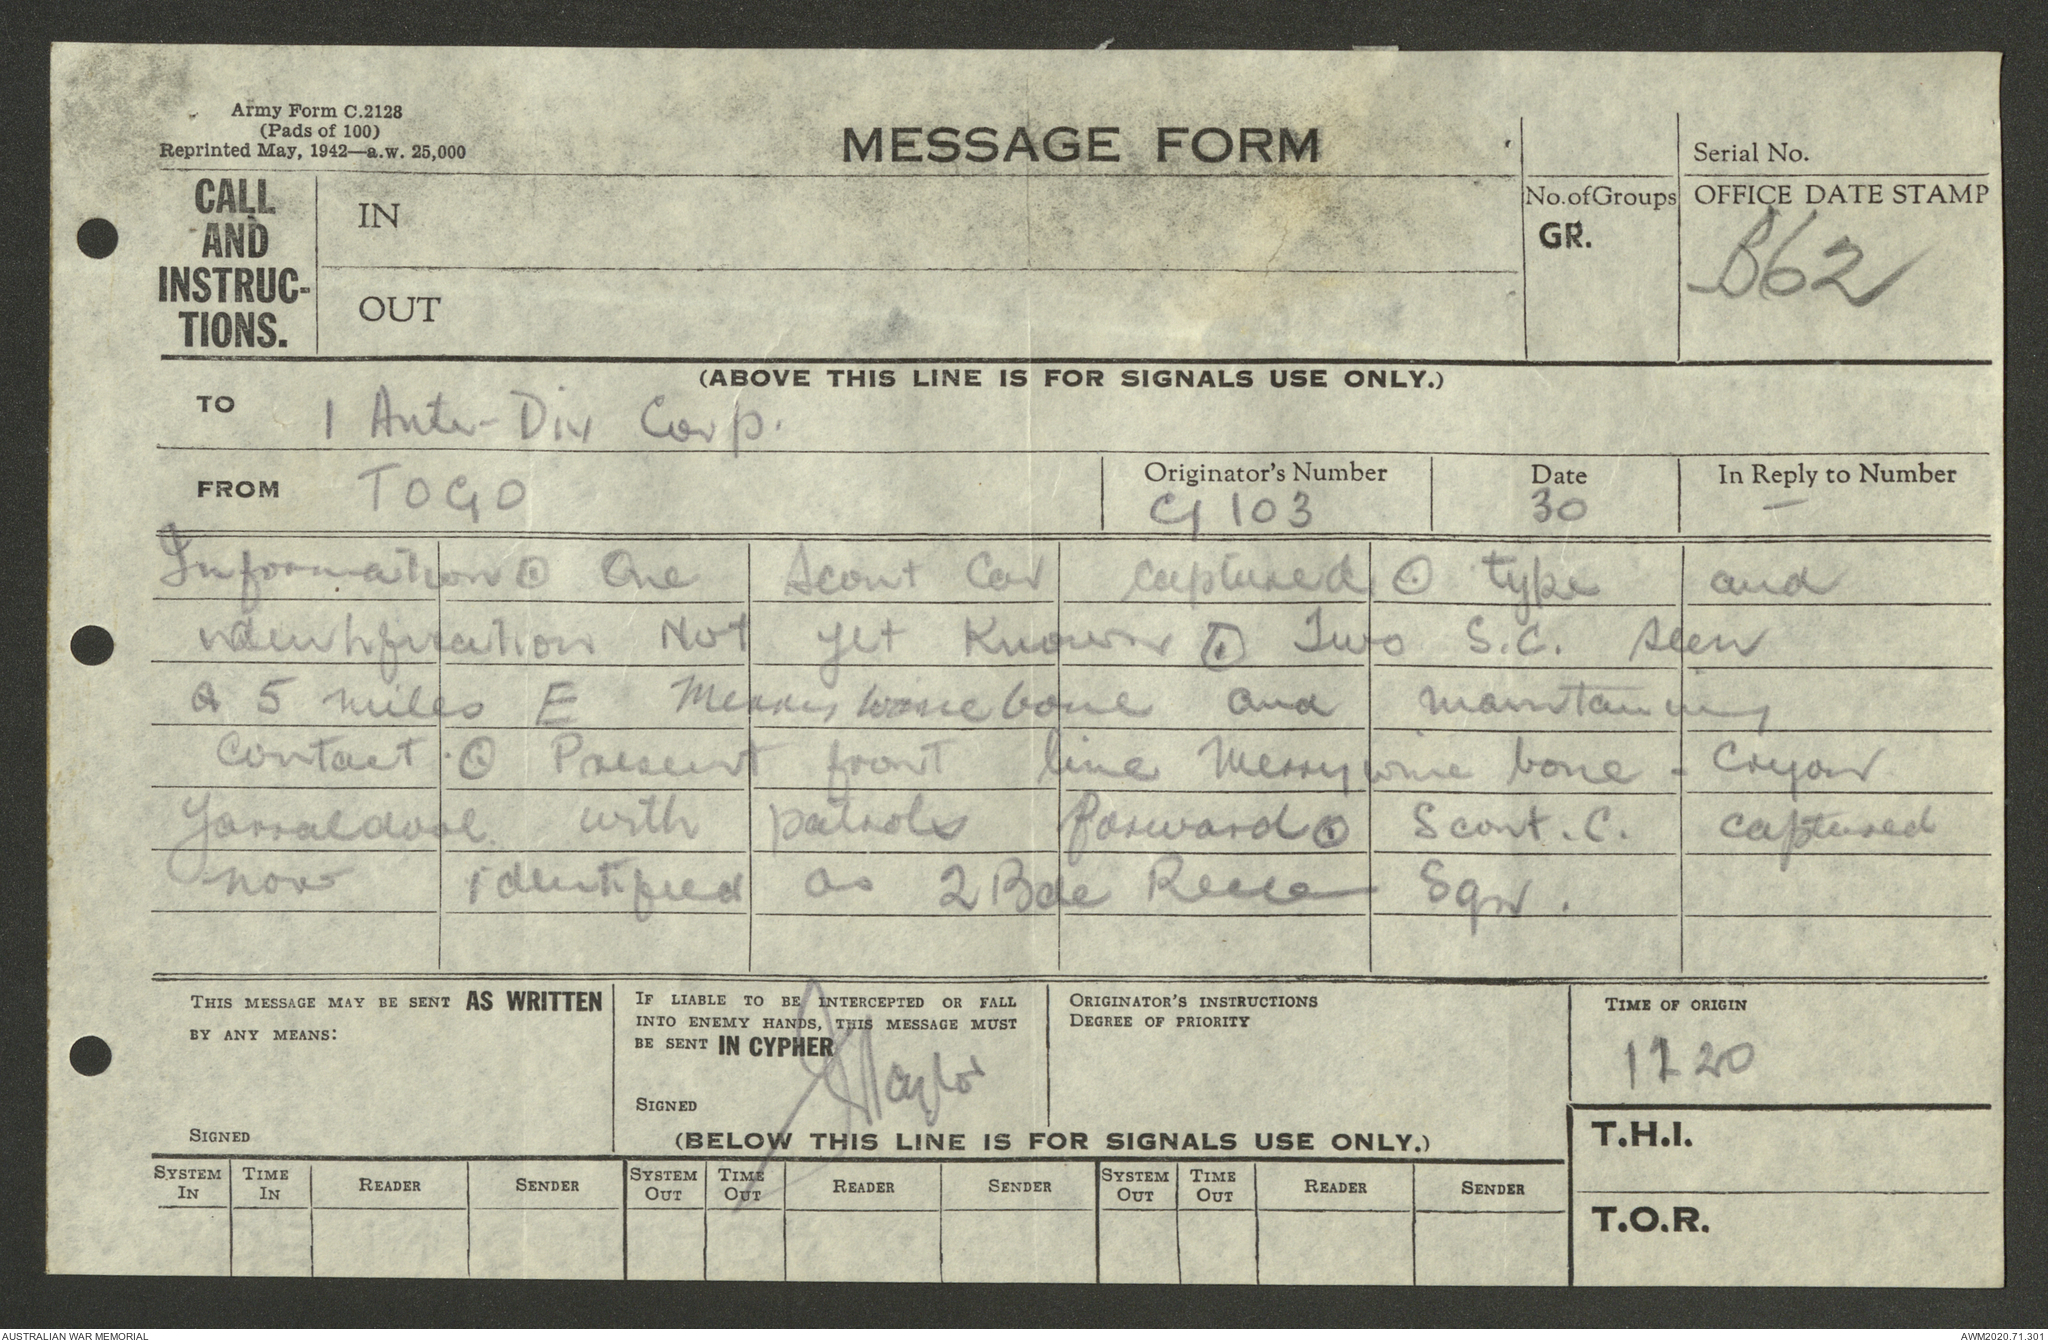 Army Form C.2128
(Pads of 100)
Reprinted May, 1942—a.w. 25,000
MESSAGE FORM
Serial No.
CALL
AND
INSTRUC-
TIONS.
IN
OUT
No. of Groups
GR.
OFFICE DATE STAMP
B62
(ABOVE THIS LINE IS FOR SIGNALS USE ONLY.)
TO 1 Div Corp.
FROM TOGO
Originator's Number
G 103
Date
30
In Reply to Number
—
Information ⊙ One Scout Car captured ⊙ type and
identification Not yet Known ⊙ Two S.C. seen
5 miles E Merrywinebone and maintaining
contact ⊙ Present front line Merrywinebone - Cryon
Yarraldool with patrols forward ⊙ Scout. C. captured
now identified as 2 Bde Recce Sqn.
THIS MESSAGE MAY BE SENT AS WRITTEN
BY ANY MEANS:
SIGNED
IF LIABLE TO BE INTERCEPTED OR FALL
INTO ENEMY HANDS, THIS MESSAGE MUST
BE SENT IN CYPHER
SIGNED Taylor
ORIGINATOR'S INSTRUCTIONS
DEGREE OF PRIORITY
TIME OF ORIGIN
1220
(BELOW THIS LINE IS FOR SIGNALS USE ONLY.)
T.H.I.
T.O.R.
SYSTEM IN TIME IN READER SENDER SYSTEM OUT TIME OUT READER SENDER SYSTEM OUT TIME OUT READER SENDER
AUSTRALIAN WAR MEMORIAL
AWM2020.71.301